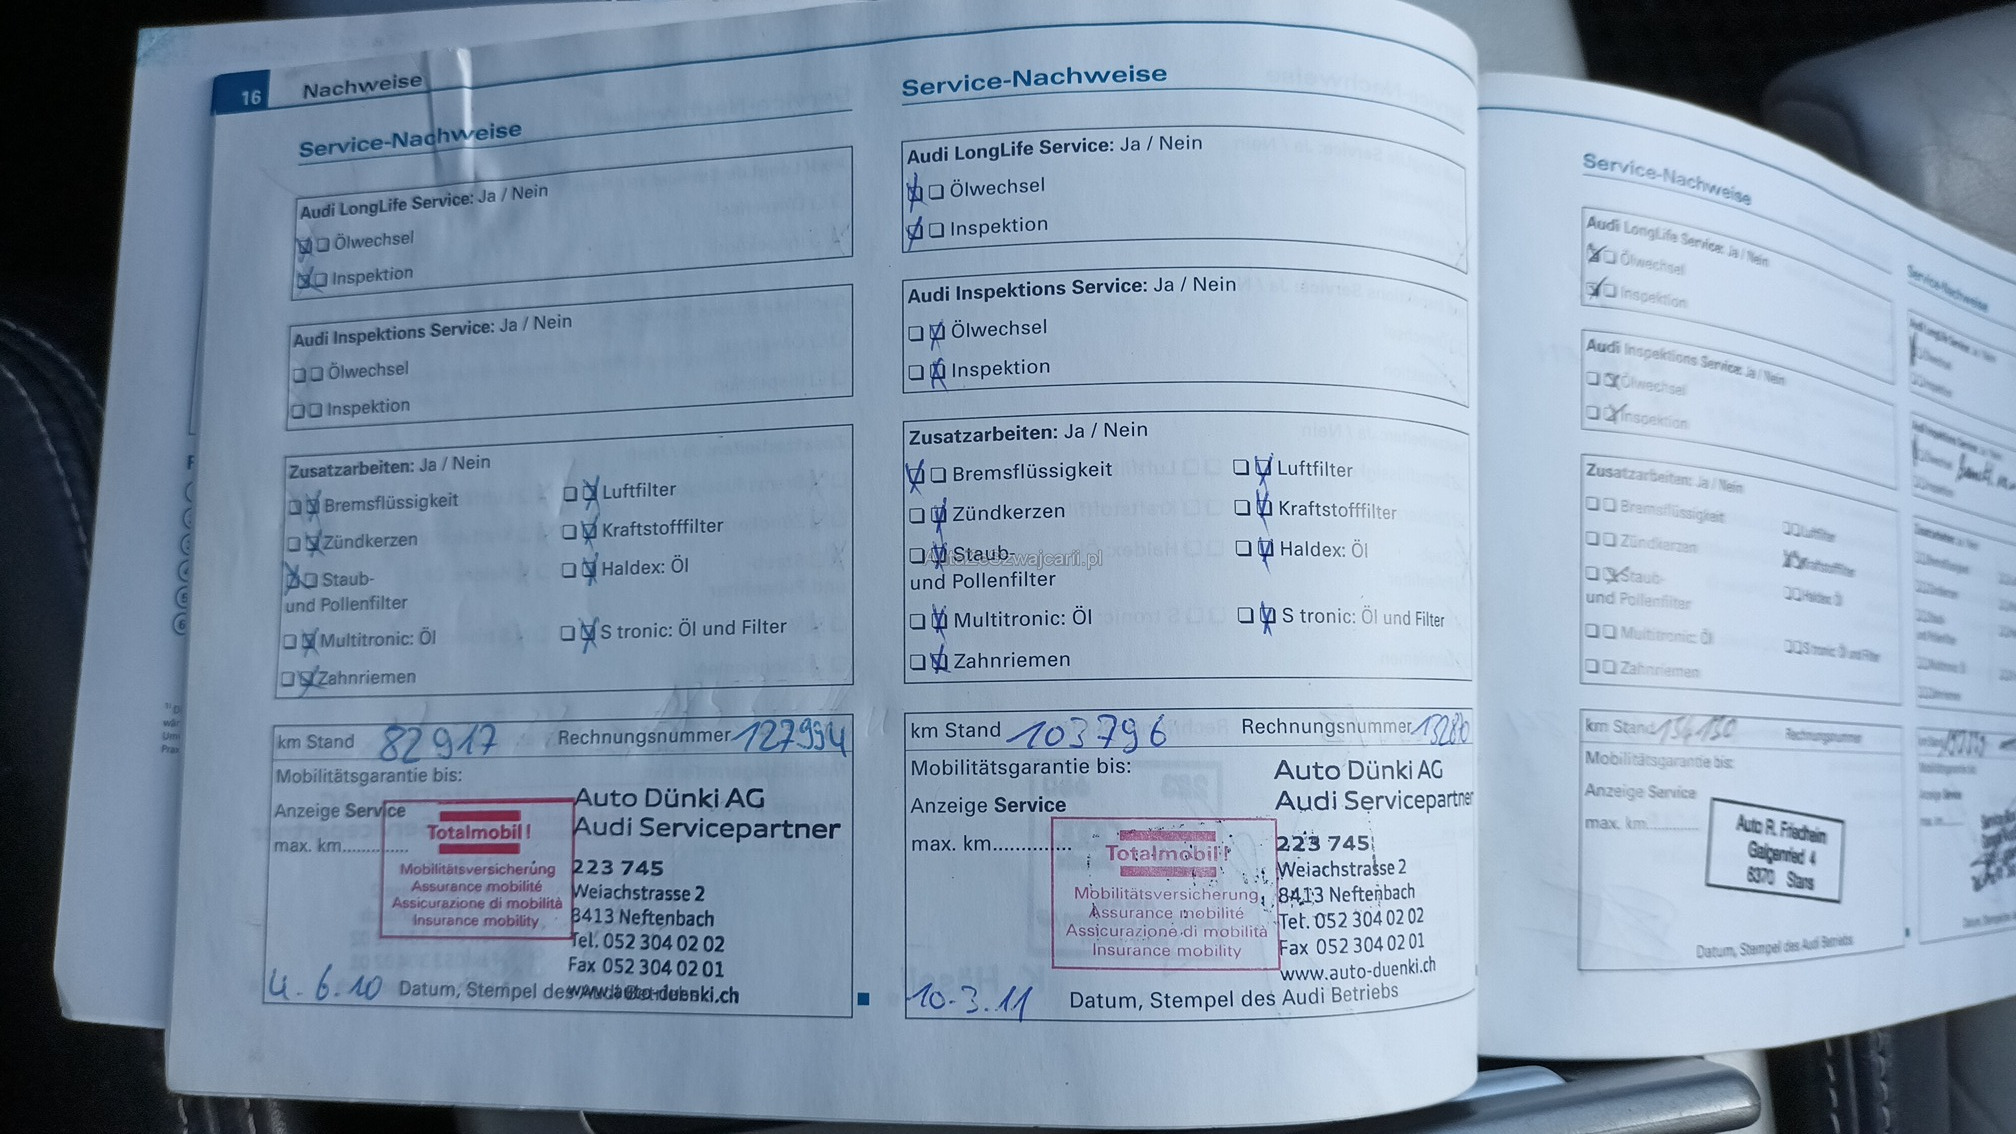 16 Nachweise
Service-Nachweise
Audi LongLife Service: Ja / Nein
Ölwechsel
Inspektion
Audi Inspektions Service: Ja / Nein
Ölwechsel
Inspektion
Zusatzarbeiten: Ja / Nein
Bremsflüssigkeit Luftfilter
Zündkerzen Kraftstofffilter
Staub- Haldex: Öl
und Pollenfilter
Multitronic: Öl S tronic: Öl und Filter
Zahnriemen
km Stand 82917 Rechnungsnummer 127994
Mobilitätsgarantie bis:
Anzeige Service
max. km..............
Totalmobil!
Mobilitätsversicherung
Assurance mobilité
Assicurazione di mobilità
Insurance mobility
Auto Dünki AG
Audi Servicepartner
223 745
Weiachstrasse 2
8413 Neftenbach
Tel. 052 304 02 02
Fax 052 304 02 01
www.auto-duenki.ch
4.6.10 Datum, Stempel des Audi Betriebs
Service-Nachweise
Audi LongLife Service: Ja / Nein
Ölwechsel
Inspektion
Audi Inspektions Service: Ja / Nein
Ölwechsel
Inspektion
Zusatzarbeiten: Ja / Nein
Bremsflüssigkeit Luftfilter
Zündkerzen Kraftstofffilter
Staub- Haldex: Öl
und Pollenfilter
Multitronic: Öl S tronic: Öl und Filter
Zahnriemen
km Stand 103796 Rechnungsnummer
Mobilitätsgarantie bis:
Anzeige Service
max. km..............
Totalmobil!
Mobilitätsversicherung
Assurance mobilité
Assicurazione di mobilità
Insurance mobility
Auto Dünki AG
Audi Servicepartner
223 745
Weiachstrasse 2
8413 Neftenbach
Tel. 052 304 02 02
Fax 052 304 02 01
www.auto-duenki.ch
10.3.11 Datum, Stempel des Audi Betriebs
Service-Nachweise
Audi LongLife Service: Ja / Nein
Ölwechsel
Inspektion
Audi Inspektions Service: Ja / Nein
Ölwechsel
Inspektion
Zusatzarbeiten: Ja / Nein
Bremsflüssigkeit Luftfilter
Zündkerzen Kraftstofffilter
Staub- Haldex: Öl
und Pollenfilter
Multitronic: Öl S tronic: Öl und Filter
Zahnriemen
km Stand 134130 Rechnungsnummer
Mobilitätsgarantie bis:
Anzeige Service
max. km..............
Auto R.
6370 Stans
Datum, Stempel des Audi Betriebs
Service-Nachweise